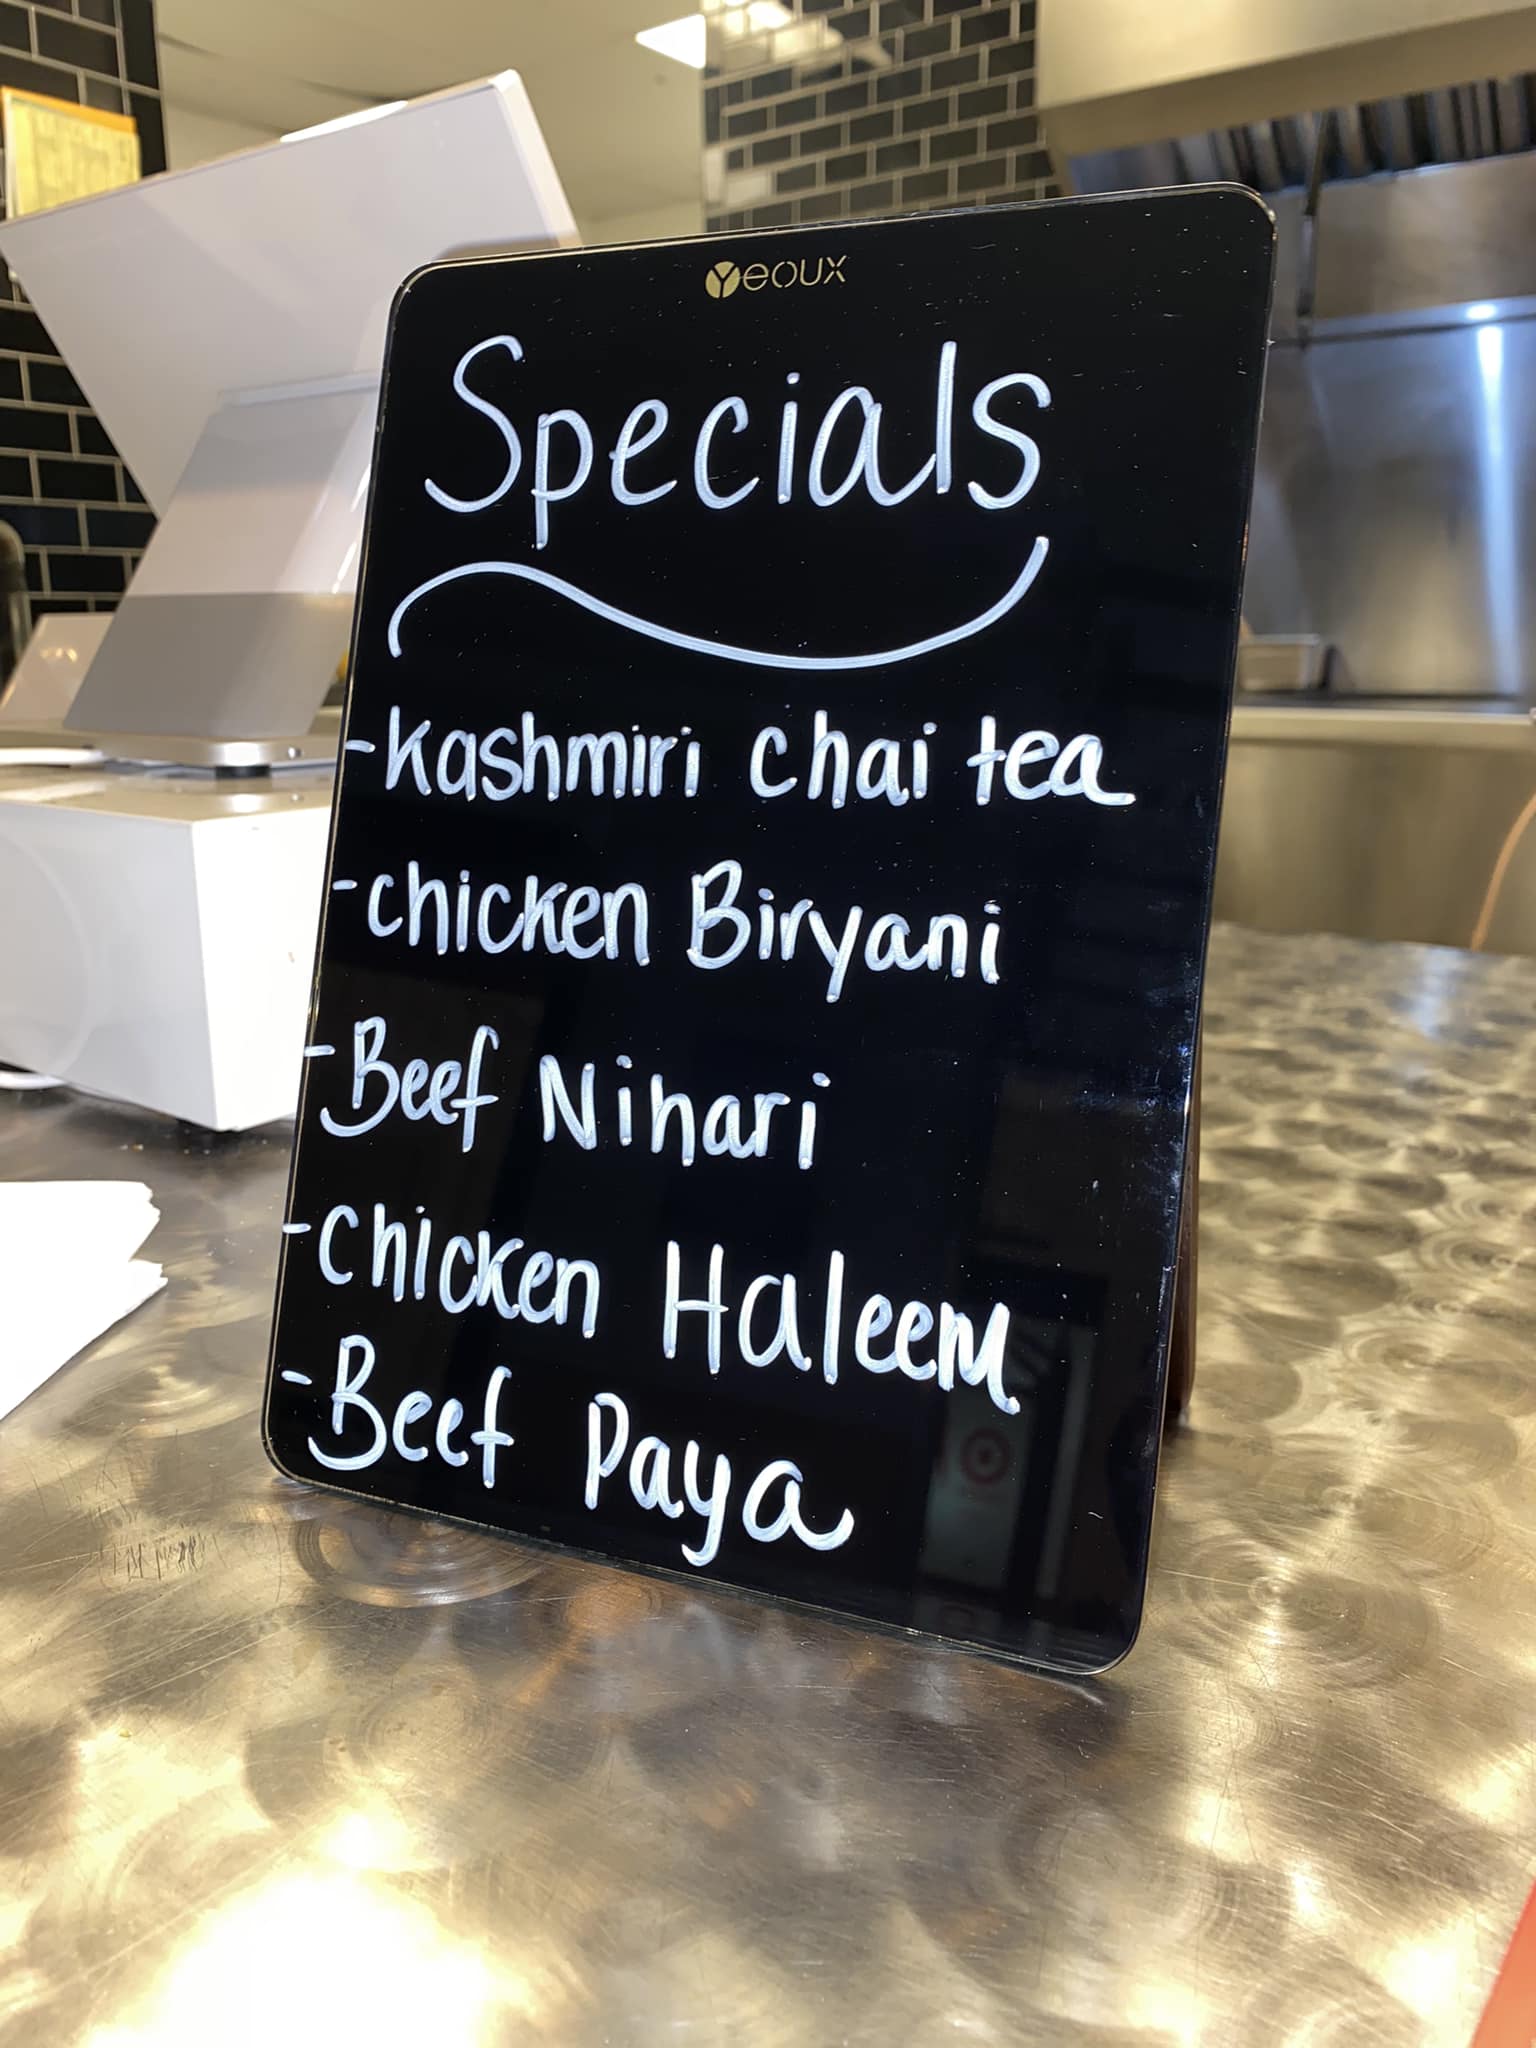 Yeoux
Specials
-Kashmiri chai tea
-chicken Biryani
-Beef Nihari
-chicken Haleem
-Beef Paya